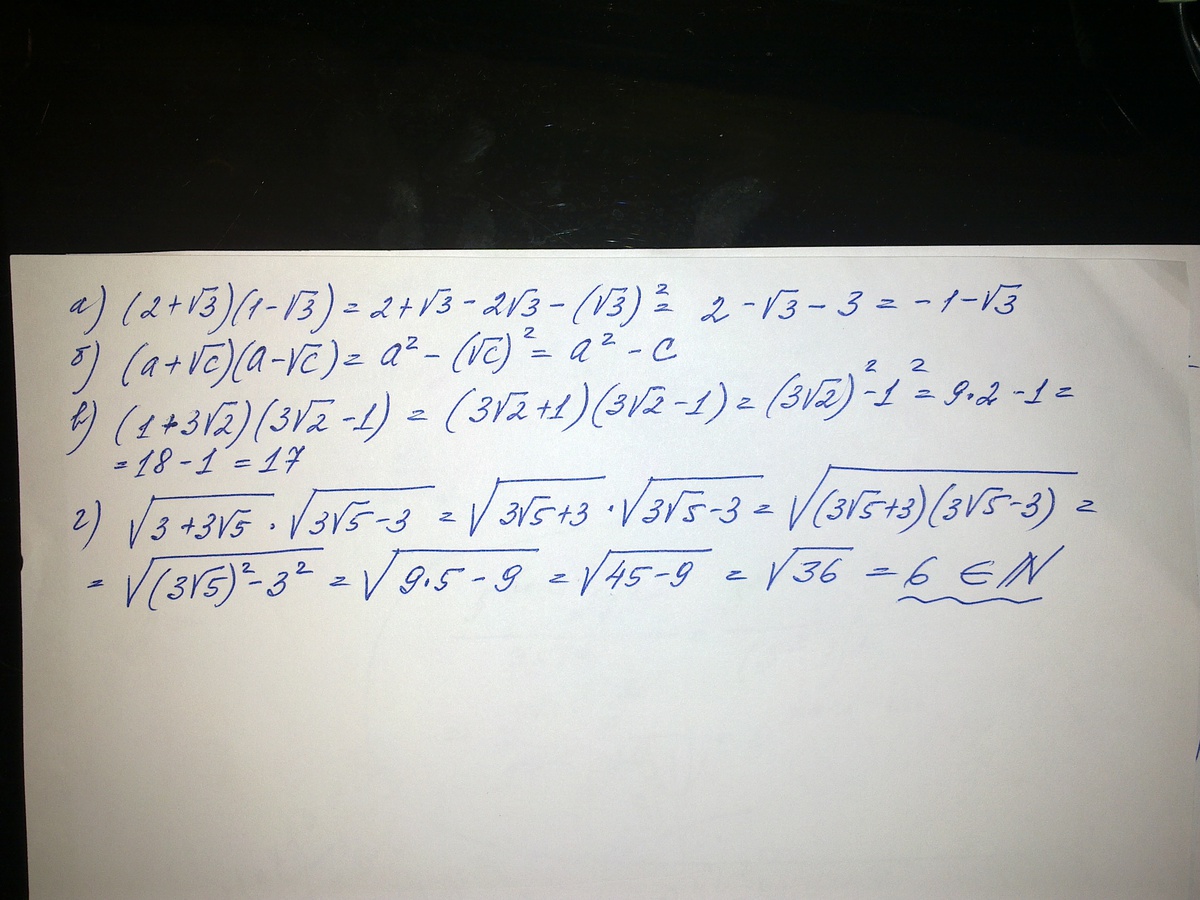 а) (2+√3)(1-√3) = 2+√3-2√3-(√3)² = 2-√3-3 = -1-√3
б) (a+√c)(a-√c) = a²-(√c)² = a²-c
в) (1+3√2)(3√2-1) = (3√2+1)(3√2-1) = (3√2)²-1² = 9·2-1 =
=18-1 =17
г) √(3+3√5) · √(3√5-3) = √(3√5+3) · √(3√5-3) = √((3√5+3)(3√5-3)) =
= √((3√5)²-3²) = √(9·5-9) = √(45-9) = √36 = 6 ∈ ℕ